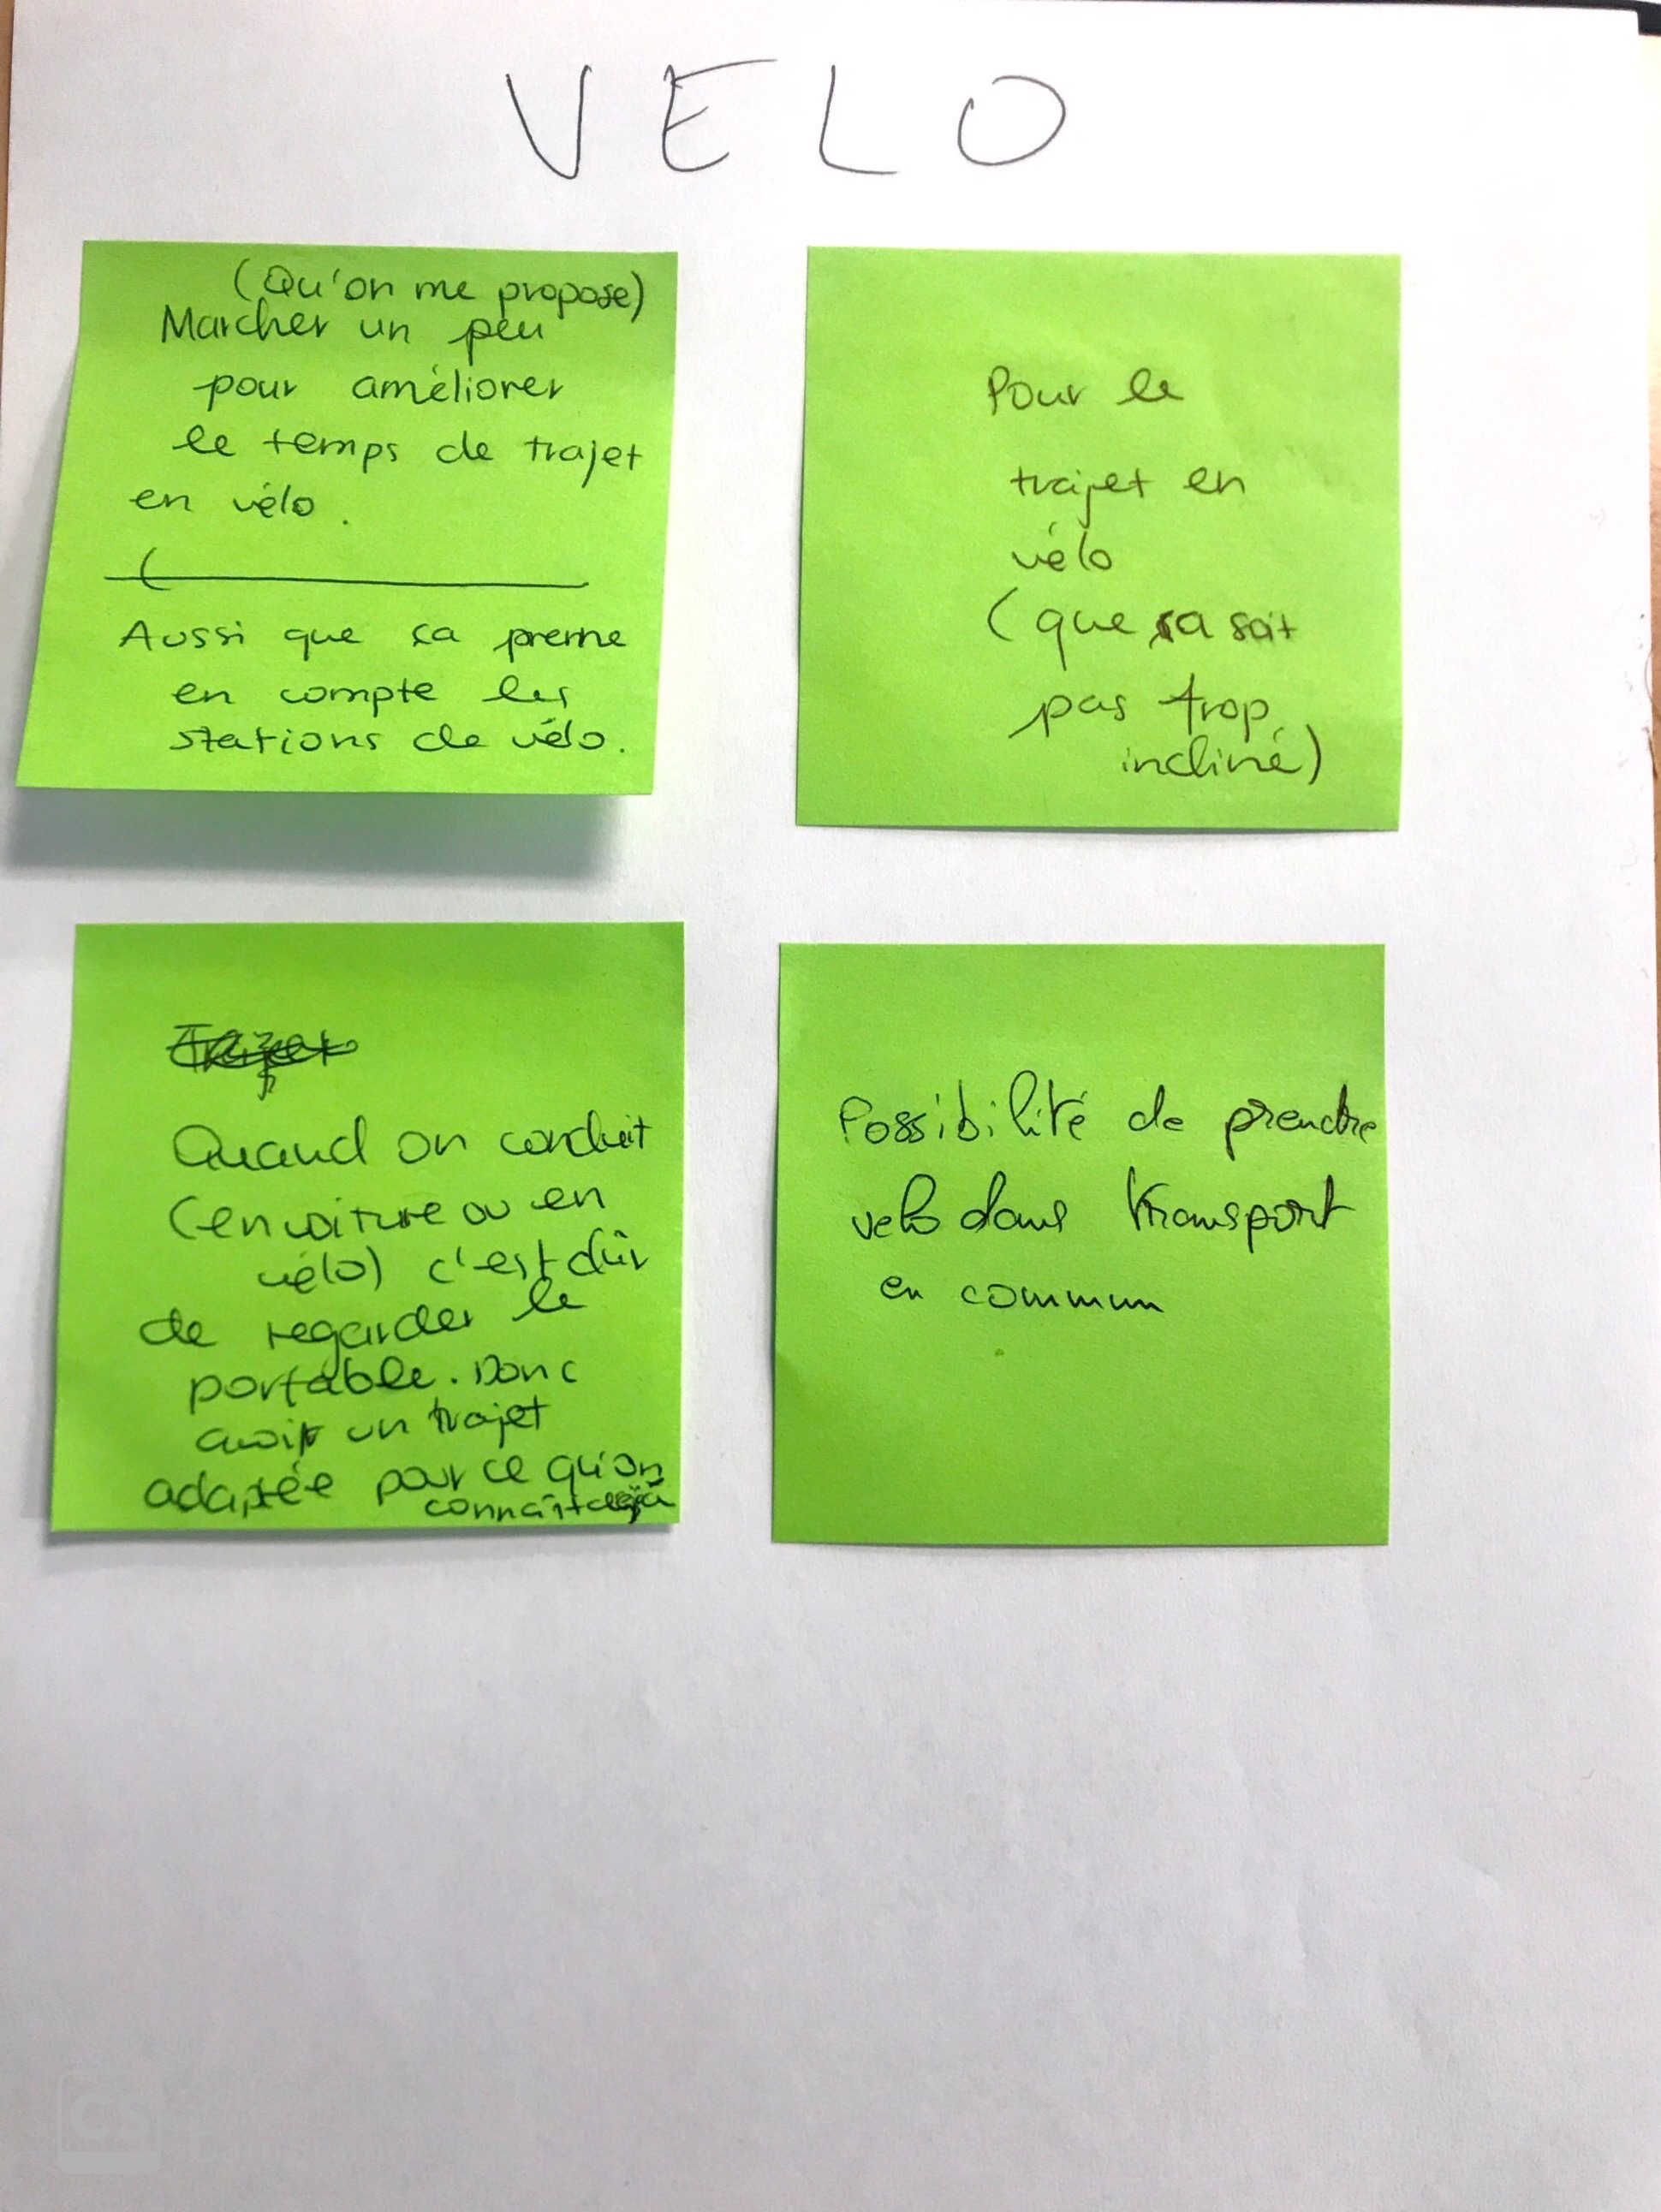 VELO
(Qu'on me propose)
Marcher un peu
pour améliorer
le temps de trajet
en vélo.
(
Aussi que ça prenne
en compte les
stations de vélo.
Pour le
trajet en
vélo
(que ça soit
pas trop
incliné)
Trajet
Quand on conduit
(en voiture ou en
vélo) c'est dûr
de regarder le
portable. Donc
avoir un trajet
adaptée pour ce qu'on
connaît déjà
Possibilité de prendre
velo dans transport
en commun
CS